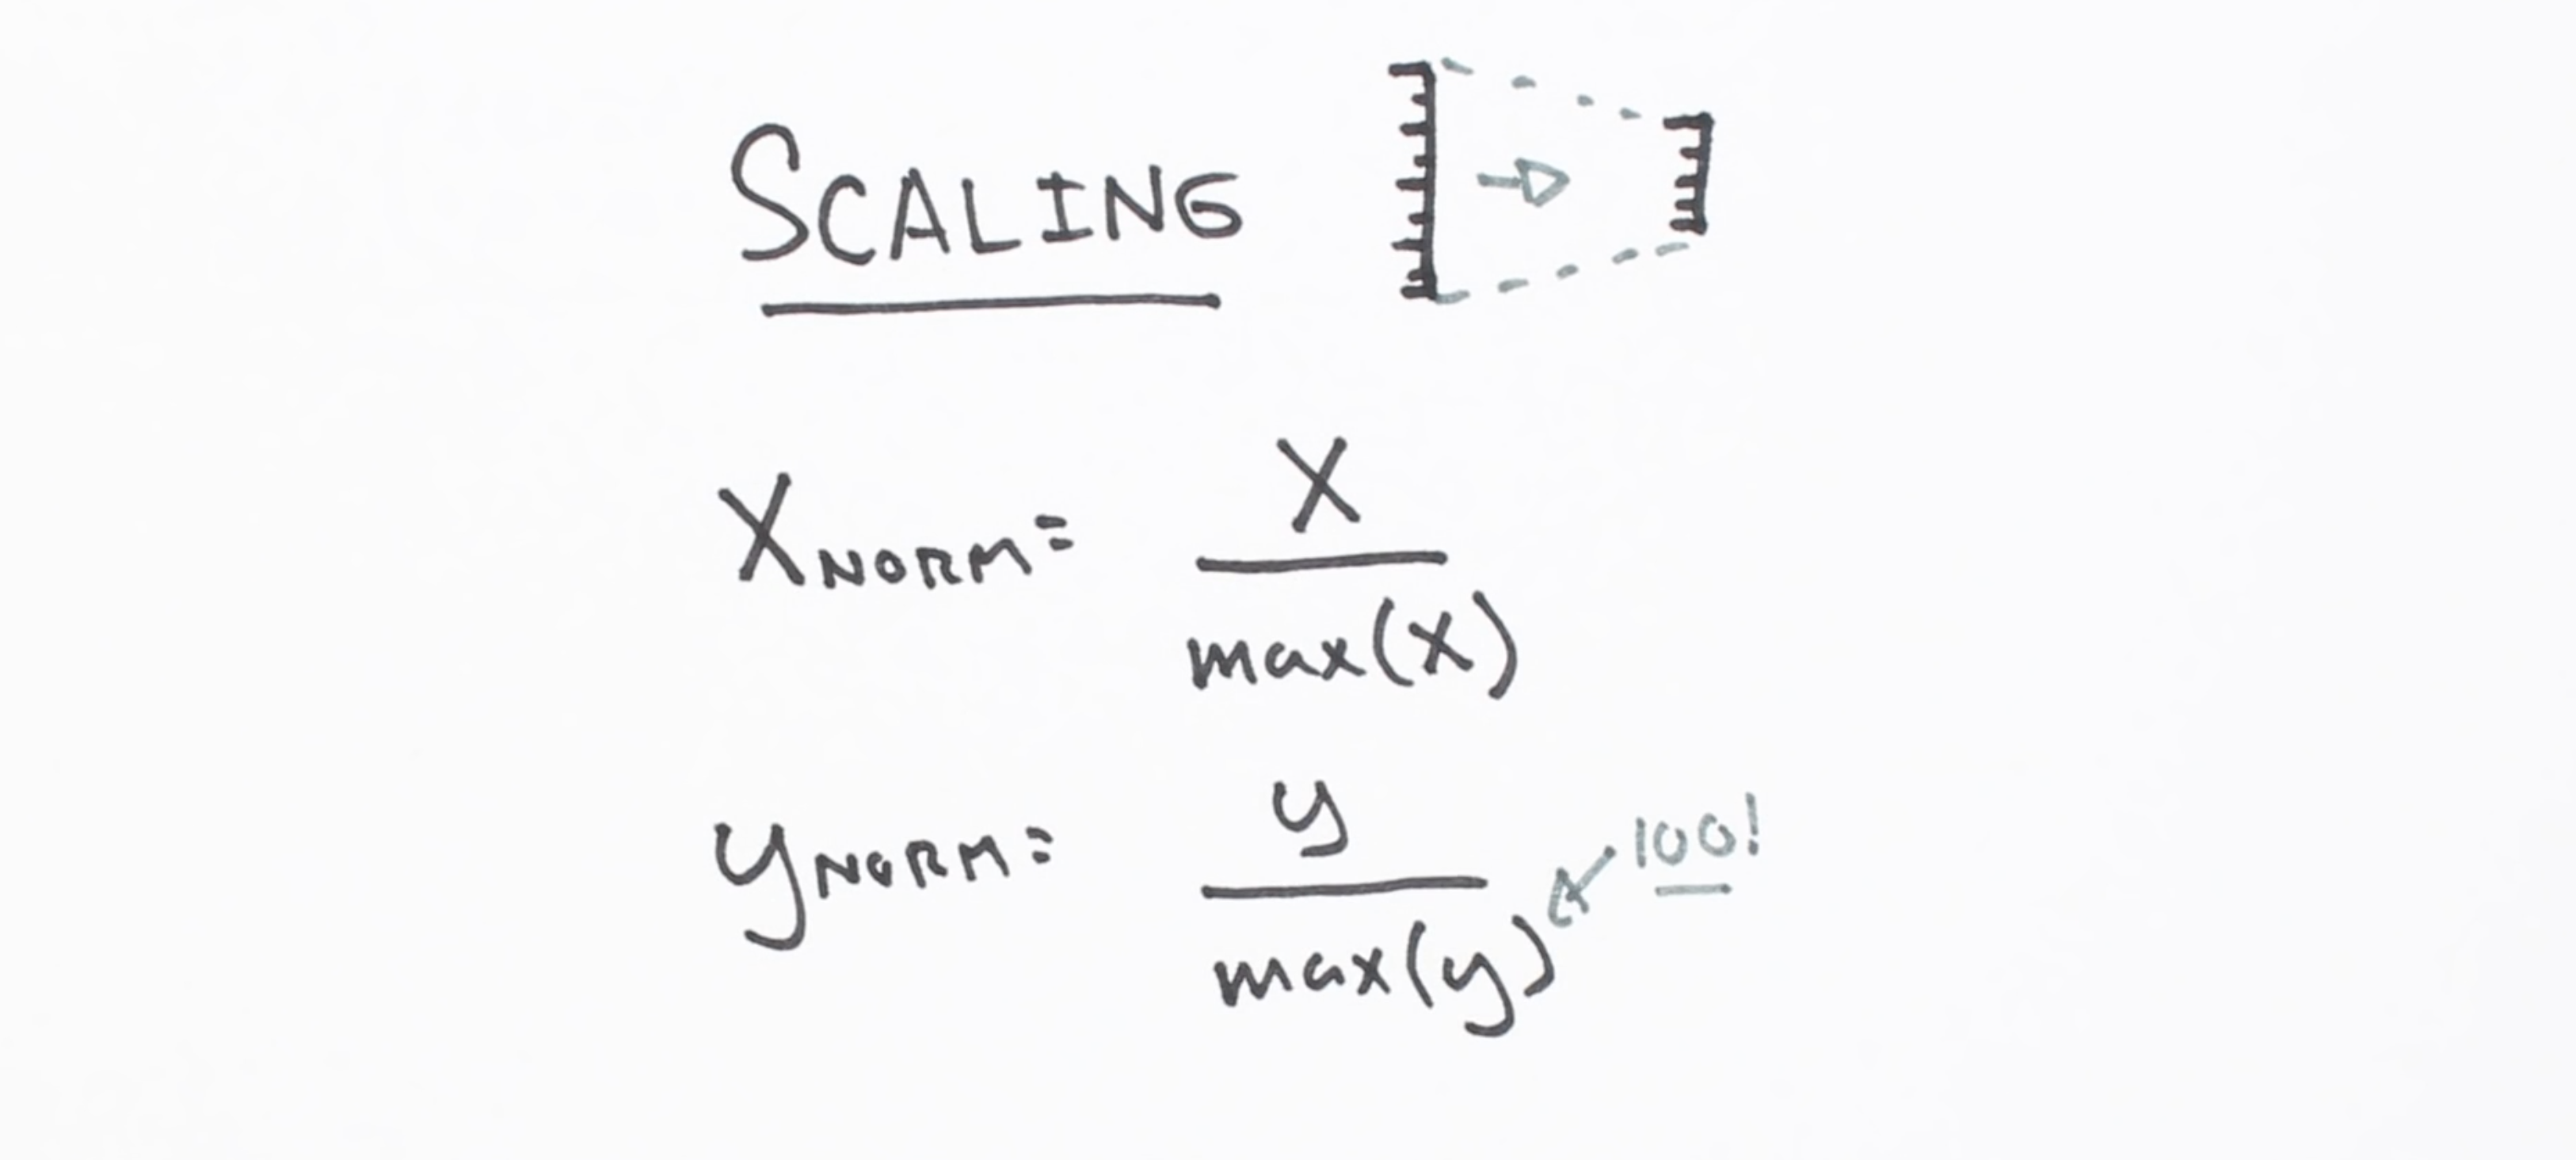 SCALING
XNORM = X
max(X)
yNORM = y
100!
max(y)